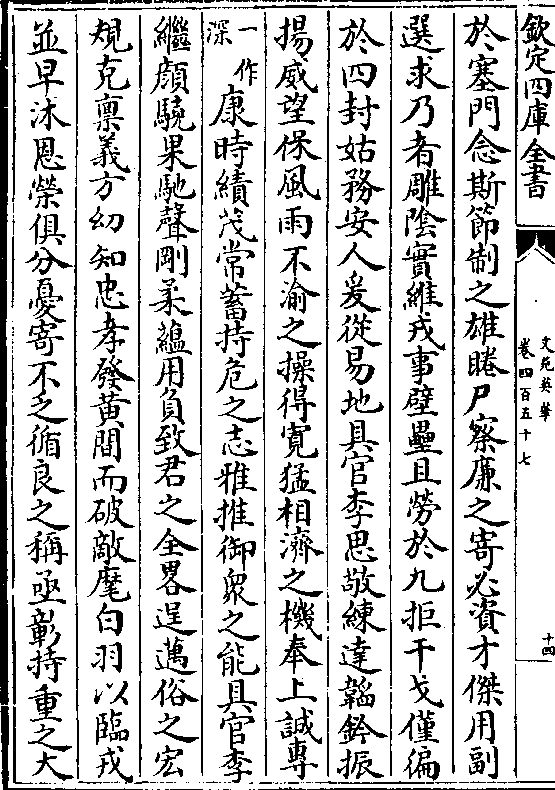 欽定四庫全書
文苑英華
卷四百五十七
十四
於塞門念斯節制之雄睠尸察廉之寄必資才傑用副
選求乃者雕陰實維戎事壁壘且勞於九拒干戈僅徧
於四封姑務安人爰從易地具官李思敬練達韜鈐振
揚威望保風雨不渝之操得寛猛相濟之機奉上誠専
一作深康時績茂常蓄持危之志雅推御衆之能具官李
繼顔驍果馳聲剛柔蘊用負致君之全畧逞邁俗之宏
規克禀義方幼知忠孝發黄間而破敵麾白羽以臨戎
並早沐恩榮俱分憂寄不乏循良之稱亟彰持重之大